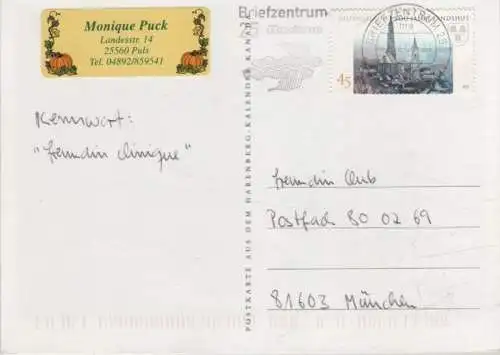 Monique Puck
Landesstr. 14
25560 Puls
Tel. 04892/859541
Briefzentrum
25
45
Kennwort:
"freundin clinique"
POSTKARTE AUS DEM HARENBERG-KALENDER KANADA
freundin Club
Postfach 80 02 69
81603 München